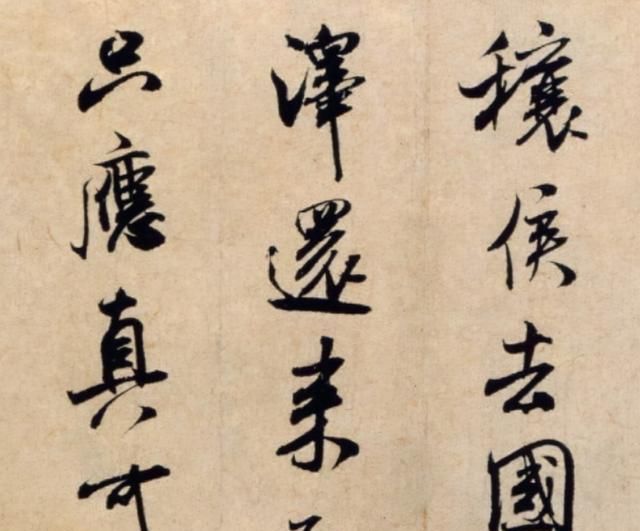 穰侯去國
澤還来
只應真可